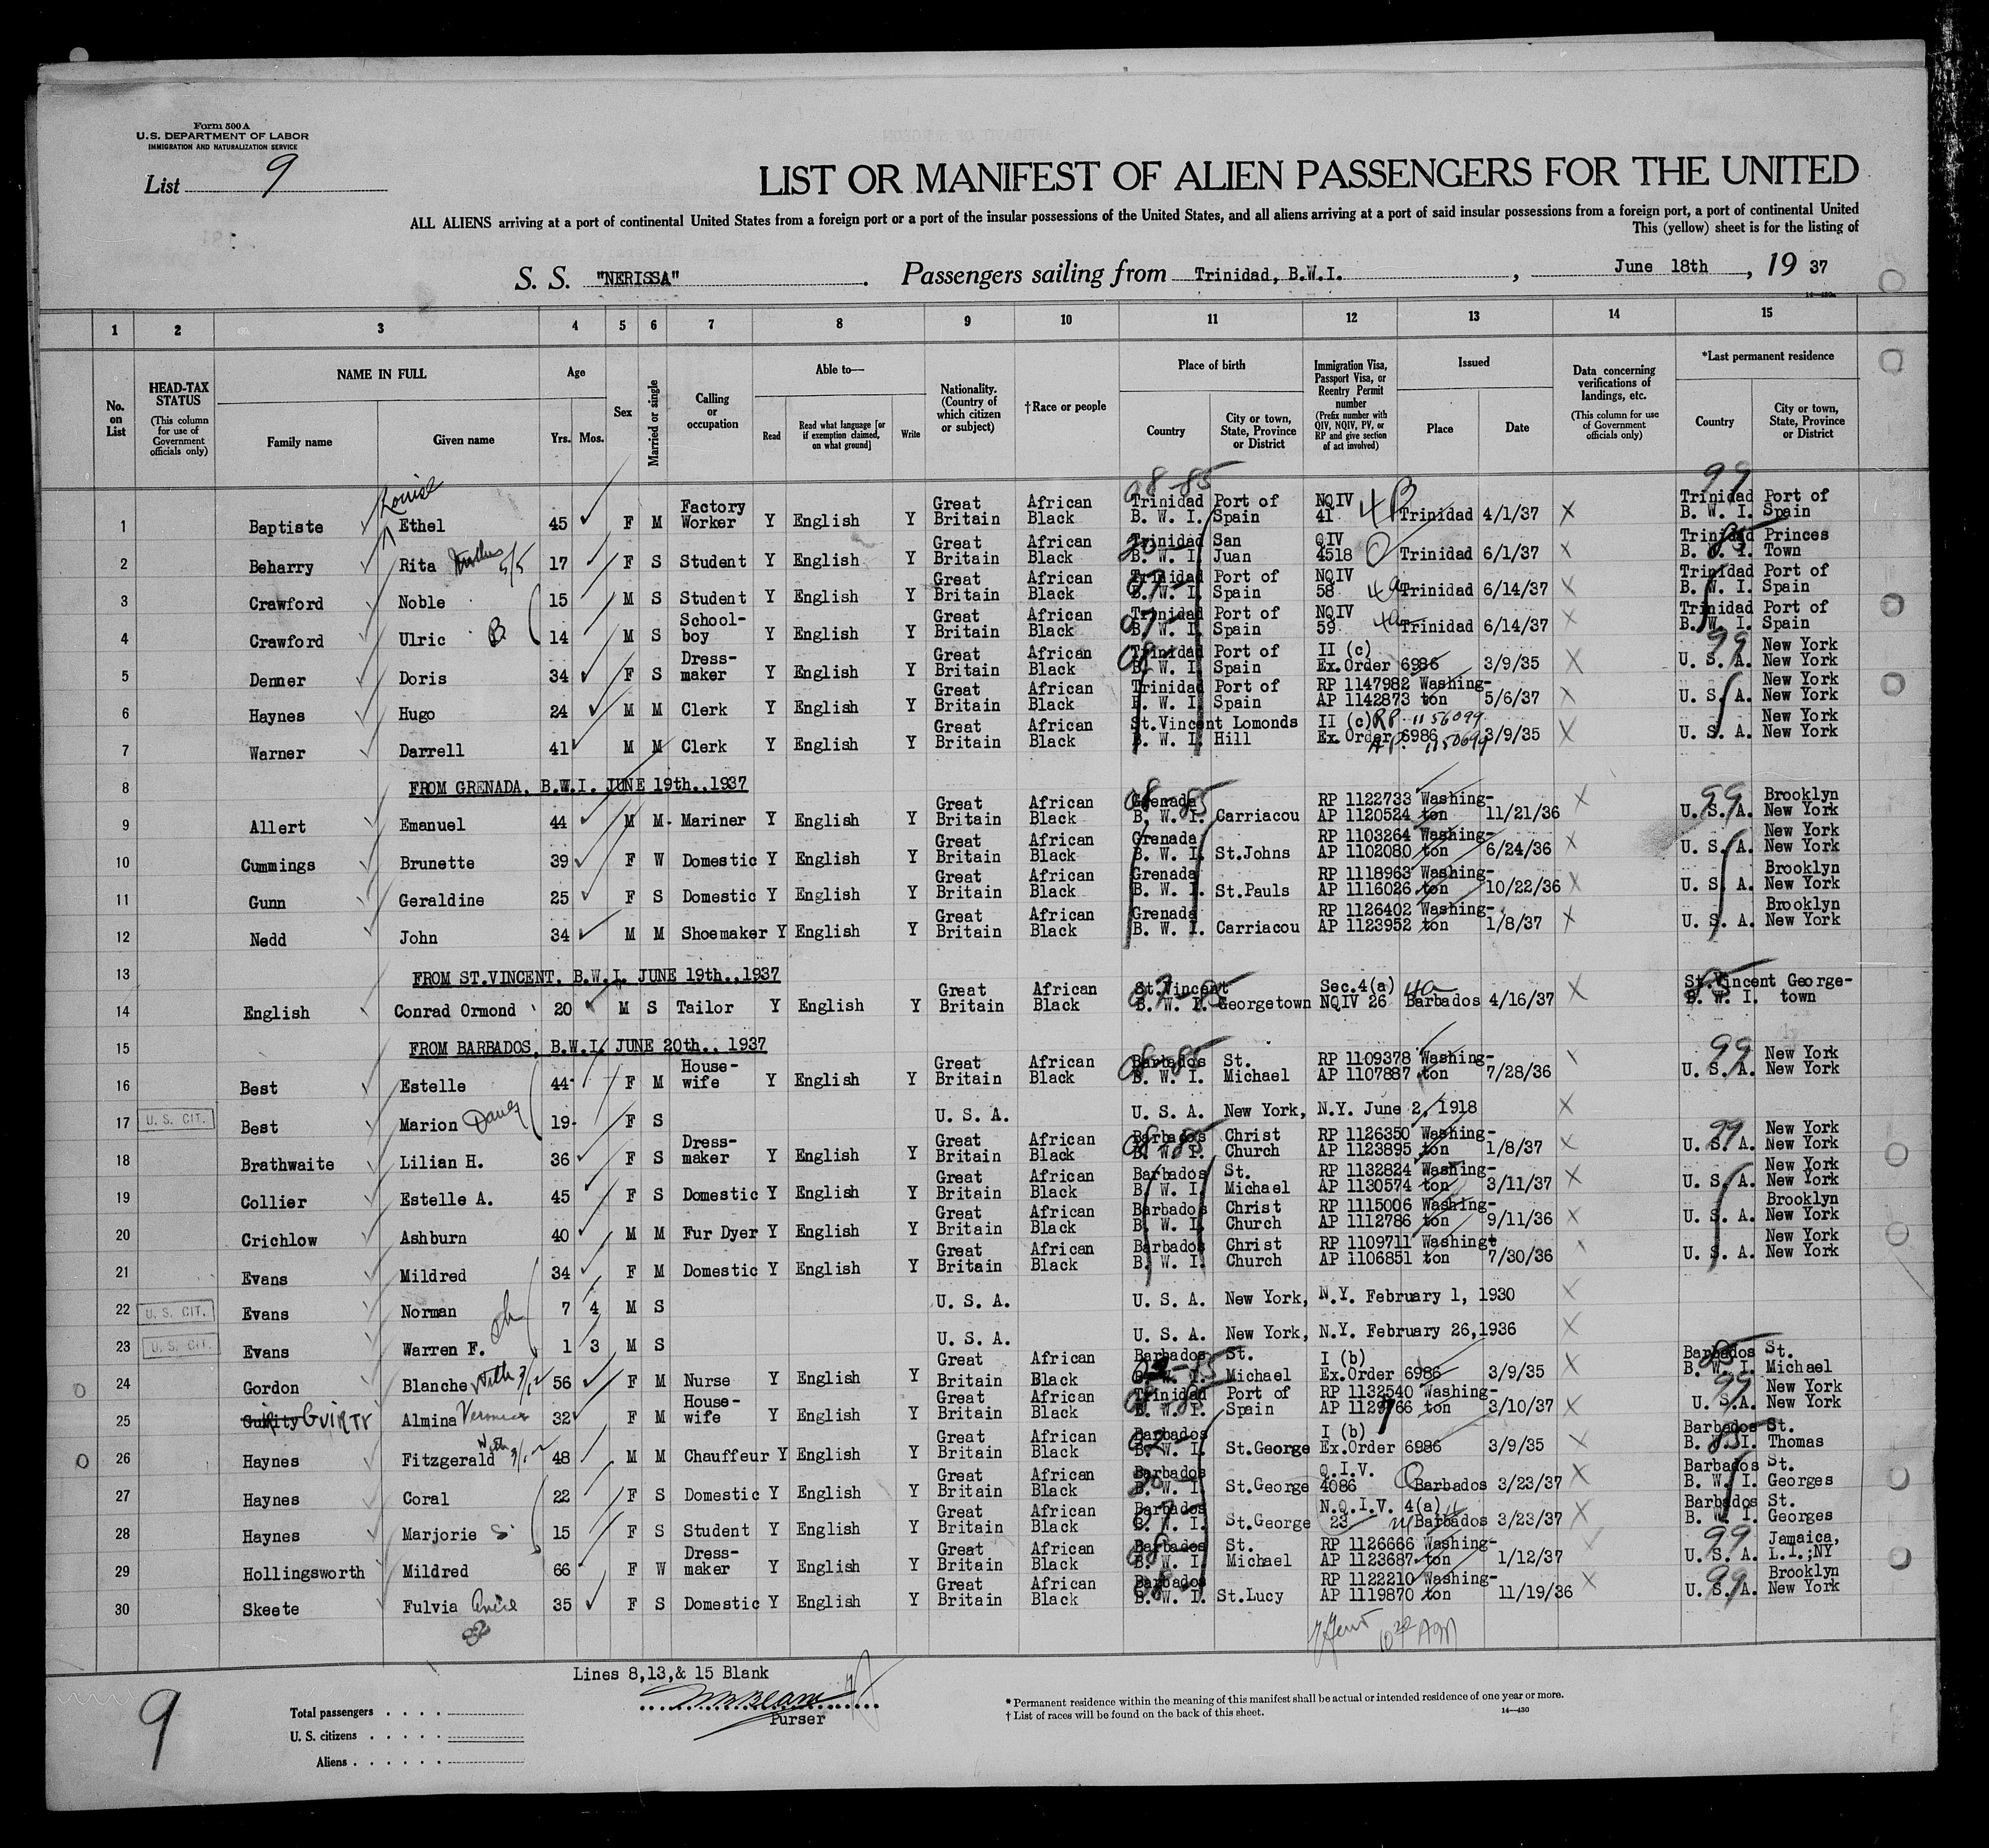 Form 500 A
U.S. DEPARTMENT OF LABOR
IMMIGRATION AND NATURALIZATION SERVICE
List 9
LIST OR MANIFEST OF ALIEN PASSENGERS FOR THE UNITED
ALL ALIENS arriving at a port of continental United States from a foreign port or a port of the insular possessions of the United States, and all aliens arriving at a port of said insular possessions from a foreign port, a port of continental United
This (yellow) sheet is for the listing of
S. S. "NERISSA". Passengers sailing from Trinidad, B.W.I., June 18th, 19 37
1 2 3 4 5 6 7 8 9 10 11 12 13 14 15
No. on List
HEAD-TAX STATUS (This column for use of Government officials only)
NAME IN FULL Family name Given name
Age Yrs. Mos.
Sex
Married or single
Calling or occupation
Able to— Read Read what language [or if exemption claimed, on what ground] Write
Nationality. (Country of which citizen or subject)
†Race or people
Place of birth Country City or town, State, Province or District
Immigration Visa, Passport Visa, or Reentry Permit number (Prefix number with QIV, NQIV, PV, or RP and give section of act involved)
Issued Place Date
Data concerning verifications of landings, etc. (This column for use of Government officials only)
*Last permanent residence Country City or town, State, Province or District
1 Baptiste Louise Ethel 45 F M Factory Worker Y English Y Great Britain African Black Trinidad B. W. I. Port of Spain NQIV 41 Trinidad 4/1/37 Trinidad B. W. I. Port of Spain
2 Beharry Rita 17 F S Student Y English Y Great Britain African Black Trinidad B. W. I. San Juan QIV 4518 Trinidad 6/1/37 Trinidad B. W. I. Princes Town
3 Crawford Noble 15 M S Student Y English Y Great Britain African Black Trinidad B. W. I. Port of Spain NQIV 58 4a Trinidad 6/14/37 Trinidad B. W. I. Port of Spain
4 Crawford Ulric B 14 M S School-boy Y English Y Great Britain African Black Trinidad B. W. I. Port of Spain NQIV 59 4a Trinidad 6/14/37 Trinidad B. W. I. Port of Spain
5 Denner Doris 34 F S Dress-maker Y English Y Great Britain African Black Trinidad B. W. I. Port of Spain II (c) Ex.Order 6986 3/9/35 99 U. S. A. New York New York
6 Haynes Hugo 24 M M Clerk Y English Y Great Britain African Black Trinidad B. W. I. Port of Spain RP 1147982 AP 1142873 Washing-ton 5/6/37 U. S. A. New York New York
7 Warner Darrell 41 M M Clerk Y English Y Great Britain African Black St.Vincent B. W. I. Lomonds Hill II (c) RP 1156099 Ex.Order 6986 AP. 3/9/35 U. S. A. New York New York
8 FROM GRENADA, B.W.I. JUNE 19th.,1937
9 Allert Emanuel 44 M M Mariner Y English Y Great Britain African Black Grenada B. W. I. Carriacou RP 1122733 AP 1120524 Washing-ton 11/21/36 99 U. S. A. Brooklyn New York
10 Cummings Brunette 39 F W Domestic Y English Y Great Britain African Black Grenada B. W. I. St.Johns RP 1103264 AP 1102080 Washing-ton 6/24/36 U. S. A. New York New York
11 Gunn Geraldine 25 F S Domestic Y English Y Great Britain African Black Grenada B. W. I. St.Pauls RP 1118963 AP 1116026 Washing-ton 10/22/36 U. S. A. Brooklyn New York
12 Nedd John 34 M M Shoemaker Y English Y Great Britain African Black Grenada B. W. I. Carriacou RP 1126402 AP 1123952 Washing-ton 1/8/37 U. S. A. Brooklyn New York
13 FROM ST.VINCENT, B.W.I. JUNE 19th.,1937
14 English Conrad Ormond 20 M S Tailor Y English Y Great Britain African Black St.Vincent B. W. I. Georgetown Sec.4(a) NQIV 26 4a Barbados 4/16/37 St.Vincent B. W. I. George-town
15 FROM BARBADOS, B.W.I. JUNE 20th., 1937
16 Best Estelle 44 F M House-wife Y English Y Great Britain African Black Barbados B. W. I. St. Michael RP 1109378 AP 1107887 Washing-ton 7/28/36 99 U. S. A. New York New York
17 U. S. CIT. Best Marion 19 F S U. S. A. U. S. A. New York, N.Y. June 2, 1918
18 Brathwaite Lilian H. 36 F S Dress-maker Y English Y Great Britain African Black Barbados B. W. I. Christ Church RP 1126350 AP 1123895 Washing-ton 1/8/37 99 U. S. A. New York New York
19 Collier Estelle A. 45 F S Domestic Y English Y Great Britain African Black Barbados B. W. I. St. Michael RP 1132824 AP 1130574 Washing-ton 3/11/37 U. S. A. New York New York
20 Crichlow Ashburn 40 M M Fur Dyer Y English Y Great Britain African Black Barbados B. W. I. Christ Church RP 1115006 AP 1112786 Washing-ton 9/11/36 U. S. A. Brooklyn New York
21 Evans Mildred 34 F M Domestic Y English Y Great Britain African Black Barbados B. W. I. Christ Church RP 1109711 AP 1106851 Washingt ton 7/30/36 U. S. A. New York New York
22 U. S. CIT. Evans Norman 7 4 M S U. S. A. U. S. A. New York, N.Y. February 1, 1930
23 U. S. CIT. Evans Warren F. 1 3 M S U. S. A. U. S. A. New York, N.Y. February 26,1936
24 Gordon Blanche 56 F M Nurse Y English Y Great Britain African Black Barbados B. W. I. St. Michael I (b) Ex.Order 6986 3/9/35 Barbados B. W. I. St. Michael
25 GUIRTY Almina Veronica 32 F M House-wife Y English Y Great Britain African Black Trinidad B. W. I. Port of Spain RP 1132540 AP 1129766 Washing-ton 3/10/37 99 U. S.A. New York New York
26 Haynes Fitzgerald 48 M M Chauffeur Y English Y Great Britain African Black Barbados B. W. I. St.George I (b) Ex.Order 6986 3/9/35 Barbados B. W. I. St. Thomas
27 Haynes Coral 22 F S Domestic Y English Y Great Britain African Black Barbados B. W. I. St.George Q.I.V. 4086 Barbados 3/23/37 Barbados B. W. I. St. Georges
28 Haynes Marjorie S 15 F S Student Y English Y Great Britain African Black Barbados B. W. I. St.George N.Q.I.V. 4(a) 23 Barbados 3/23/37 Barbados B. W. I. St. Georges
29 Hollingsworth Mildred 66 F W Dress-maker Y English Y Great Britain African Black Barbados B. W. I. St. Michael RP 1126666 AP 1123687 Washing-ton 1/12/37 99 U. S. A. Jamaica, L.I.;NY
30 Skeete Fulvia 35 F S Domestic Y English Y Great Britain African Black Barbados B. W. I. St.Lucy RP 1122210 AP 1119870 Washing-ton 11/19/36 99 U. S. A. Brooklyn New York
Lines 8,13,& 15 Blank
Purser
9
Total passengers
U. S. citizens
Aliens
* Permanent residence within the meaning of this manifest shall be actual or intended residence of one year or more.
† List of races will be found on the back of this sheet.
14—430